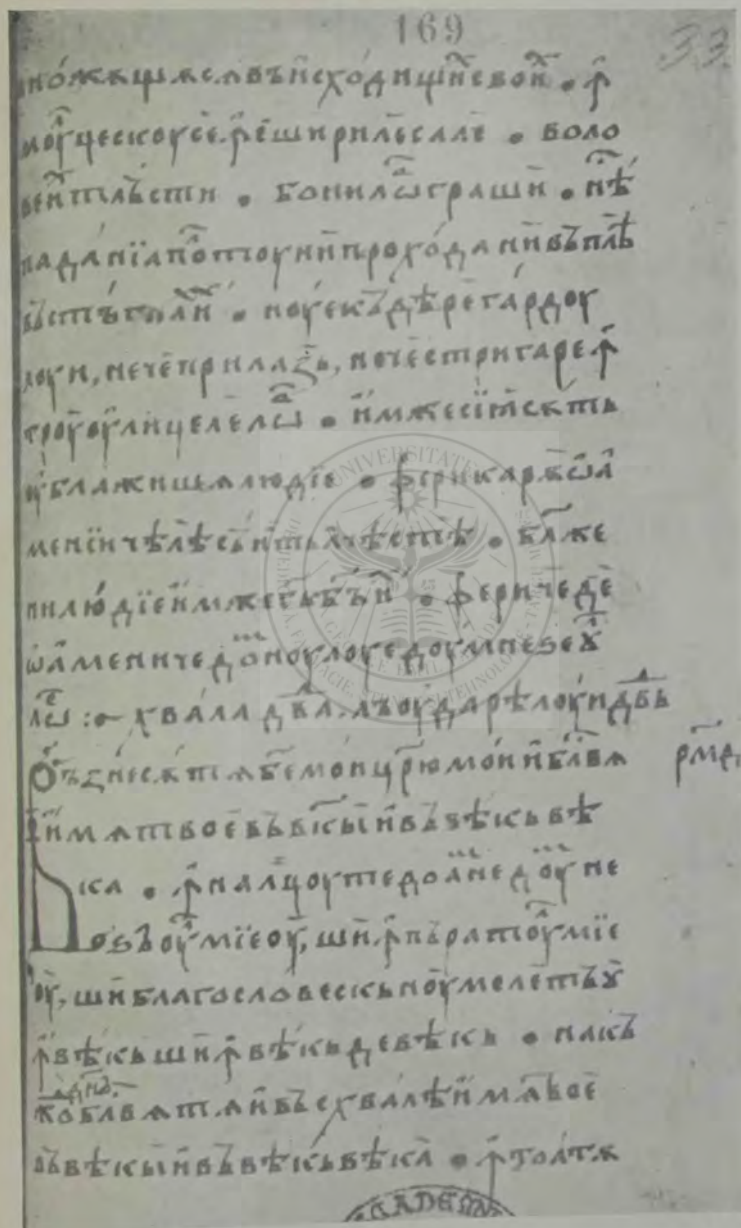 169
33
множѧщѧсѧ въ исходищи свои · ꙟ
моуцескоусе · ꙟши ширилесале · боло
вени тлъсти · бои лѡ грашй · нѣ
паданїа плотоу ни проходани въплѣ
въ стъгнан · ноу екъдѣре гардоу
лоуи, нече прилазь, нече стригаре ꙟ
троу оулицеле лѡ · имже сїа скть
оублажишѧ людїе · ферикарѣ ѡа
менїи чѣлѣ сънть ачѣстѣ · блже
ни людїе имже гь бъ и · фериче де
ѡамени че домноулоуе доумнеѕеꙋ
лѡ :~ хвала двда · лъоударѣ лоуи двдь
Възнесѫ тѧ бже мои црю мои и блвѧ
имѧ твое въ вѣкы и въ вѣкь вѣ
ка · ꙟналцоуте доамне доумне
ѕъоул мїеоу, ши ꙟпъратоул мїе
оу, ши благословескь ноумеле тъꙋ
ꙟ вѣкь ши ꙟ вѣкь де вѣкь · На всѣкъ
днь
блвѧ тѧ и въсхвалѣ имѧ твое
въ вѣкы и въ вѣкь вѣка · ꙟ тоатѫ